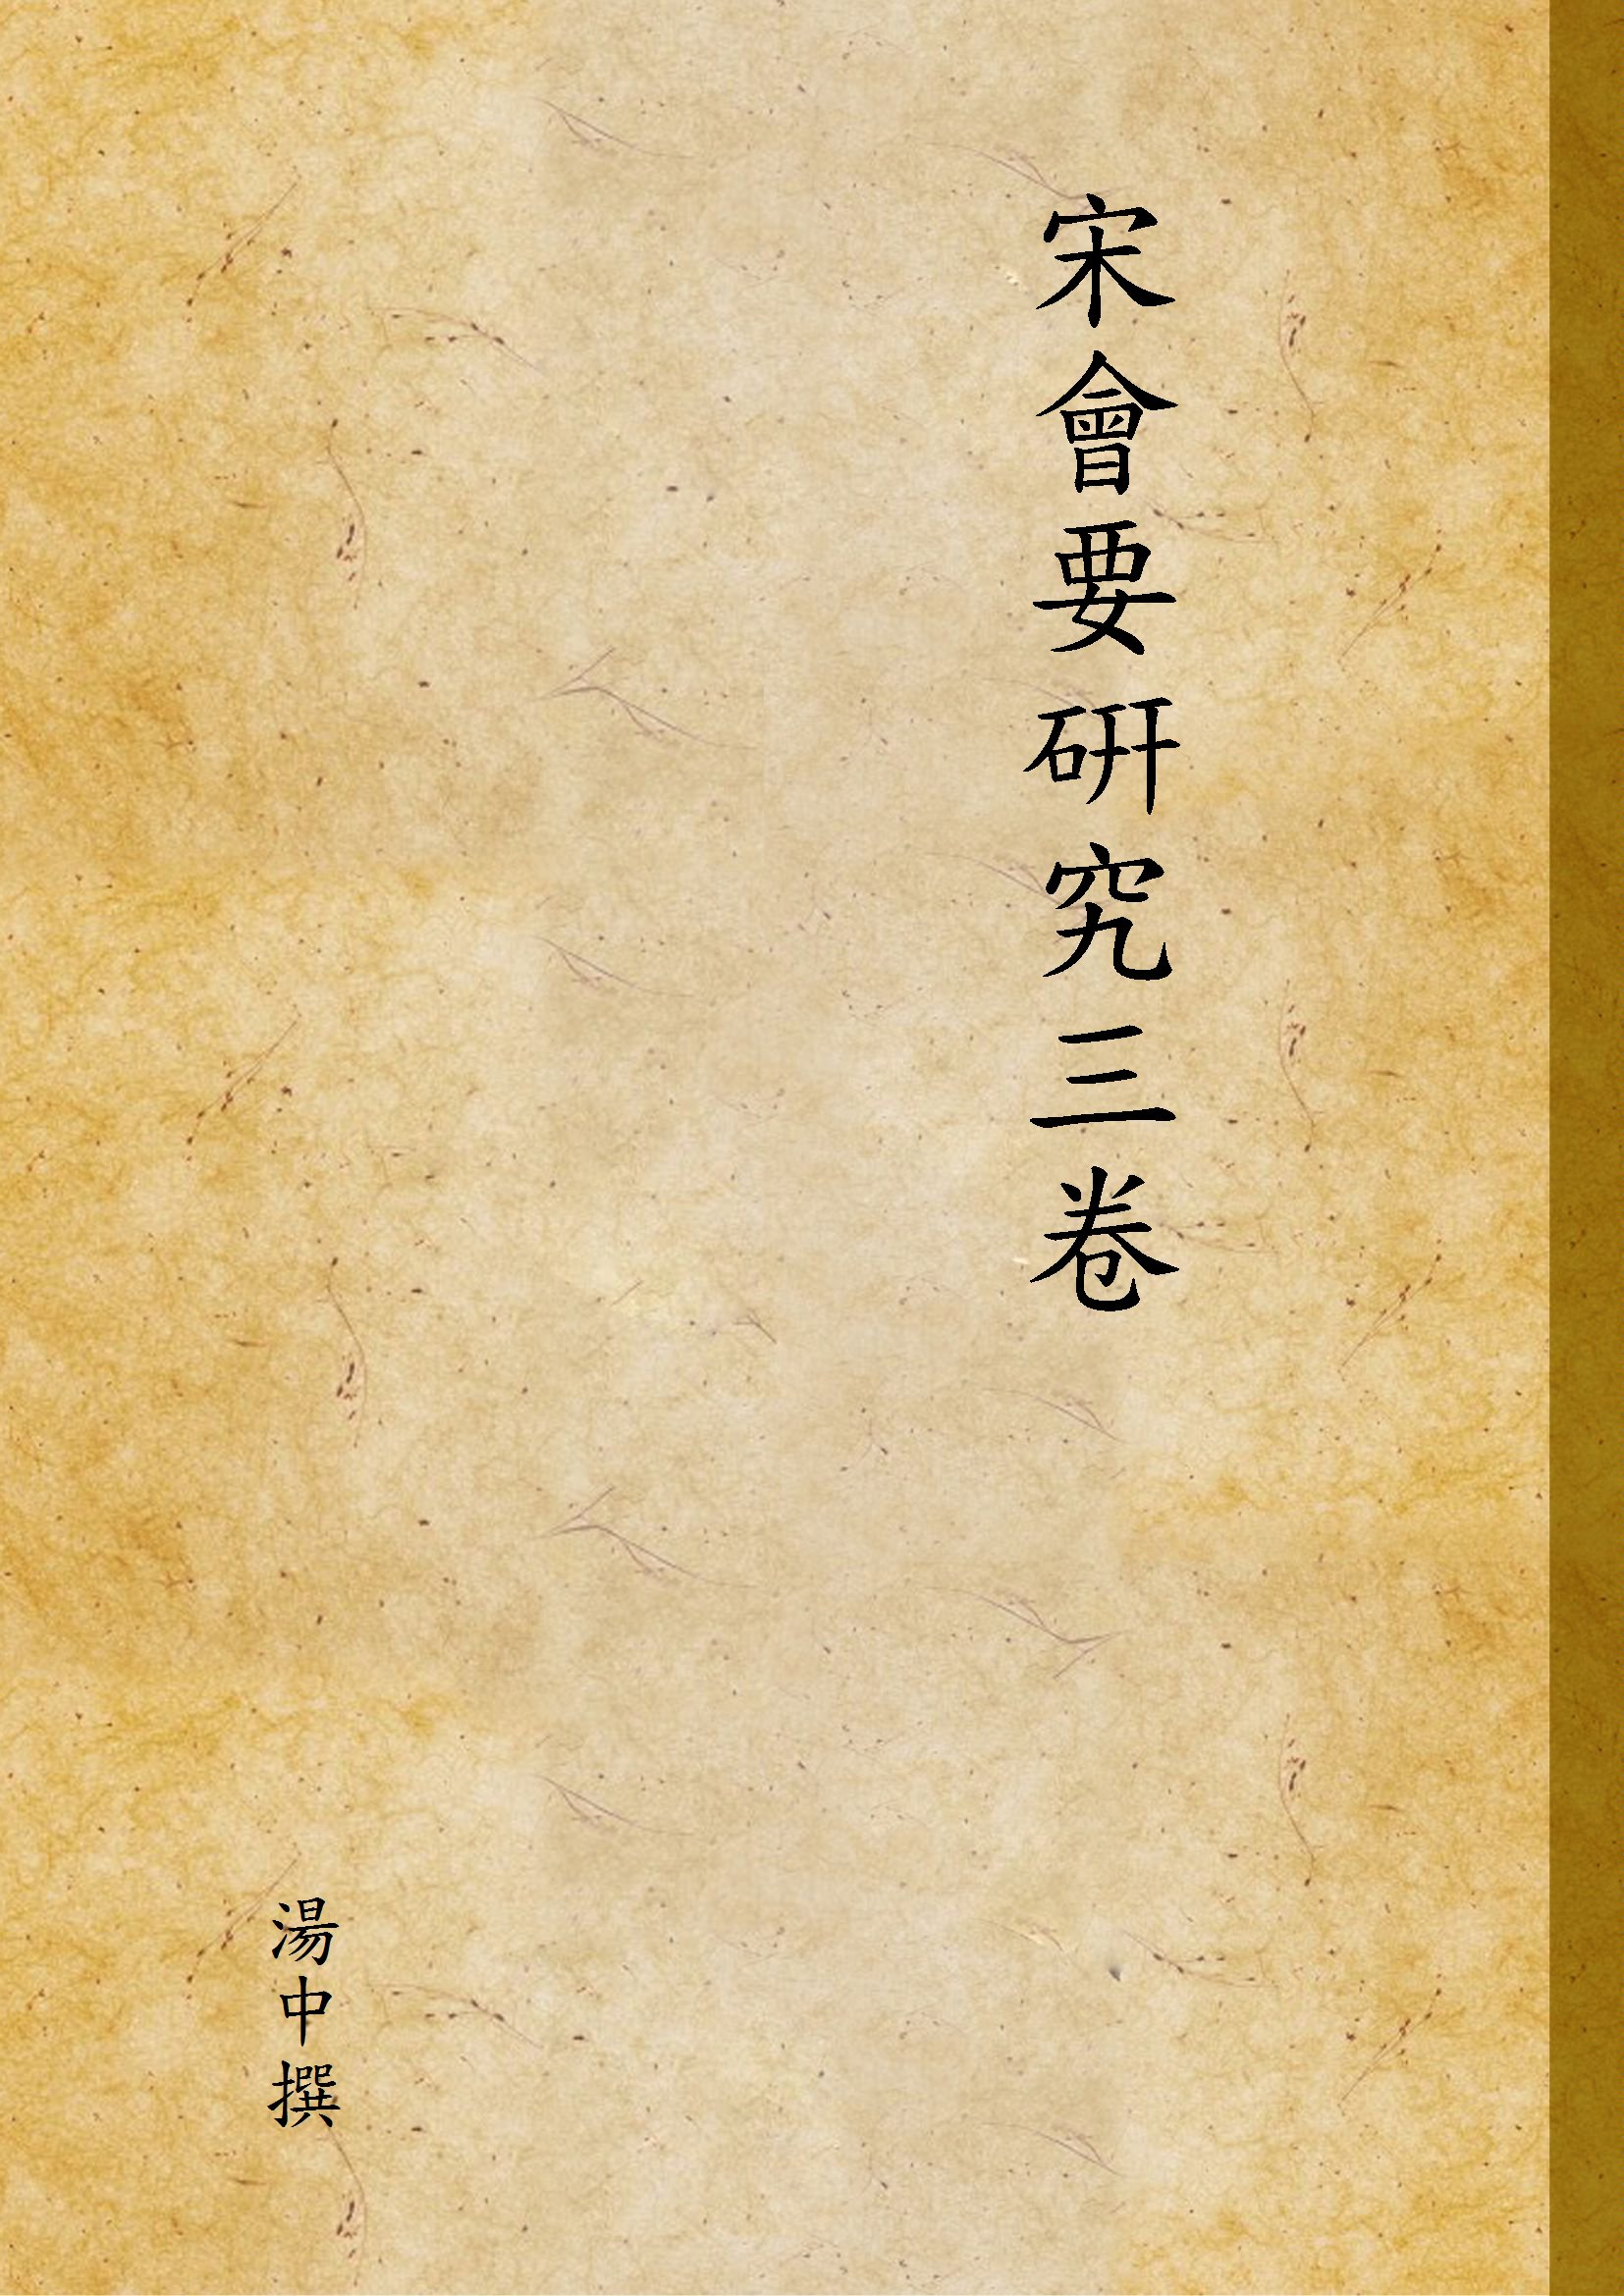 宋會要研究三卷
湯中撰